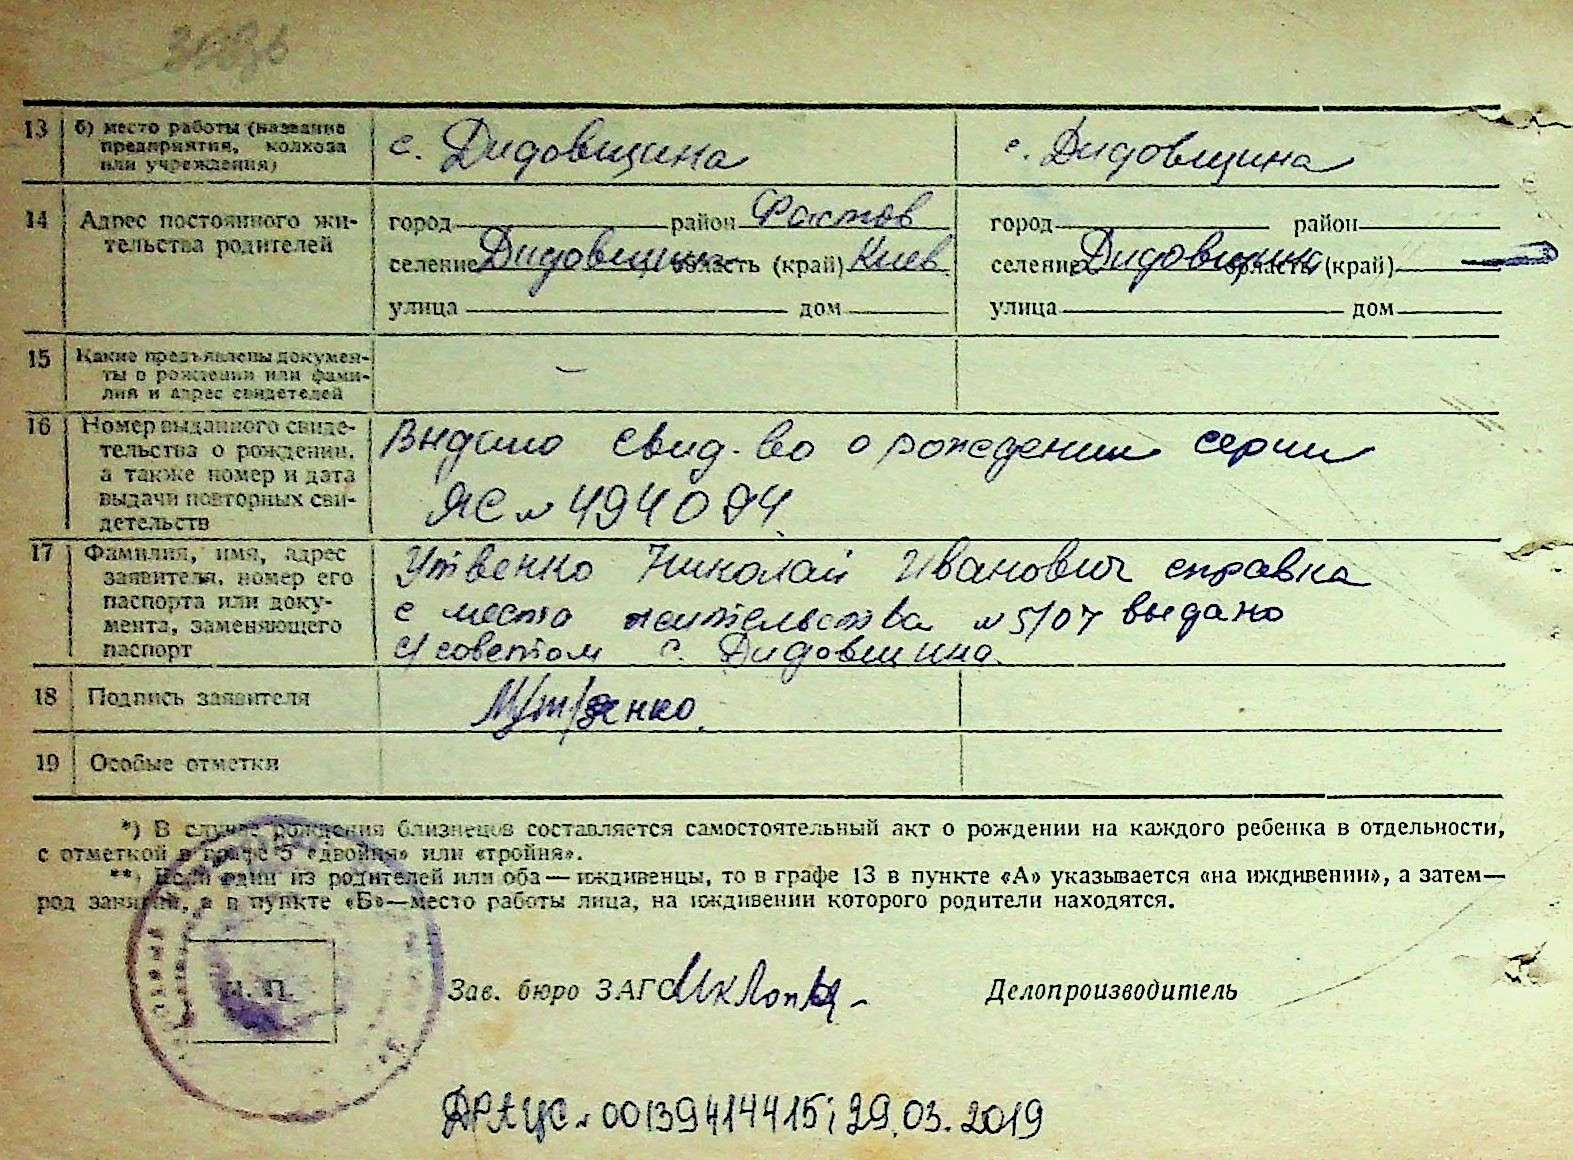 13 б) место работы (название
предприятия, колхоза
или учреждения)
с. Дидовщина
с. Дидовщина
14 Адрес постоянного жи-
тельства родителей
город район Фастов
селение Дидовщина область (край) Киев
улица дом
город район
селение Дидовщина область (край)
улица дом
15 Какие предъявлены докумен-
ты о рождении или фами-
лия и адрес свидетелей
—
16 Номер выданного свиде-
тельства о рождении,
а также номер и дата
выдачи повторных сви-
детельств
Выдано свид-во о рождении серии
ЯС № 494094
17 Фамилия, имя, адрес
заявителя, номер его
паспорта или доку-
мента, заменяющего
паспорт
Утвенко Николай Иванович справка
с места жительства № 5/07 выдано
с/советом с. Дидовщина.
18 Подпись заявителя
19 Особые отметки
*) В случае рождения близнецов составляется самостоятельный акт о рождении на каждого ребенка в отдельности,
с отметкой в графе 5 «двойня» или «тройня».
**) Если один из родителей или оба — иждивенцы, то в графе 13 в пункте «А» указывается «на иждивении», а затем—
род занятий, а в пункте «Б»—место работы лица, на иждивении которого родители находятся.
М. П.
Зав. бюро ЗАГС
Делопроизводитель
ДРАЦС № 00139414415; 29.03.2019